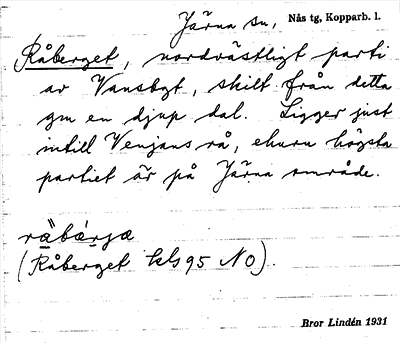 Järna sn, Nås tg, Kopparb. l.
Råberget, nordvästligt parti
av Vansbgt, skilt från detta
gm en djup dal. Ligger just
intill Venjans rå, ehuru högsta
partiet är på Järna område.
(Råberget kls 95 NO).
Bror Lindén 1931